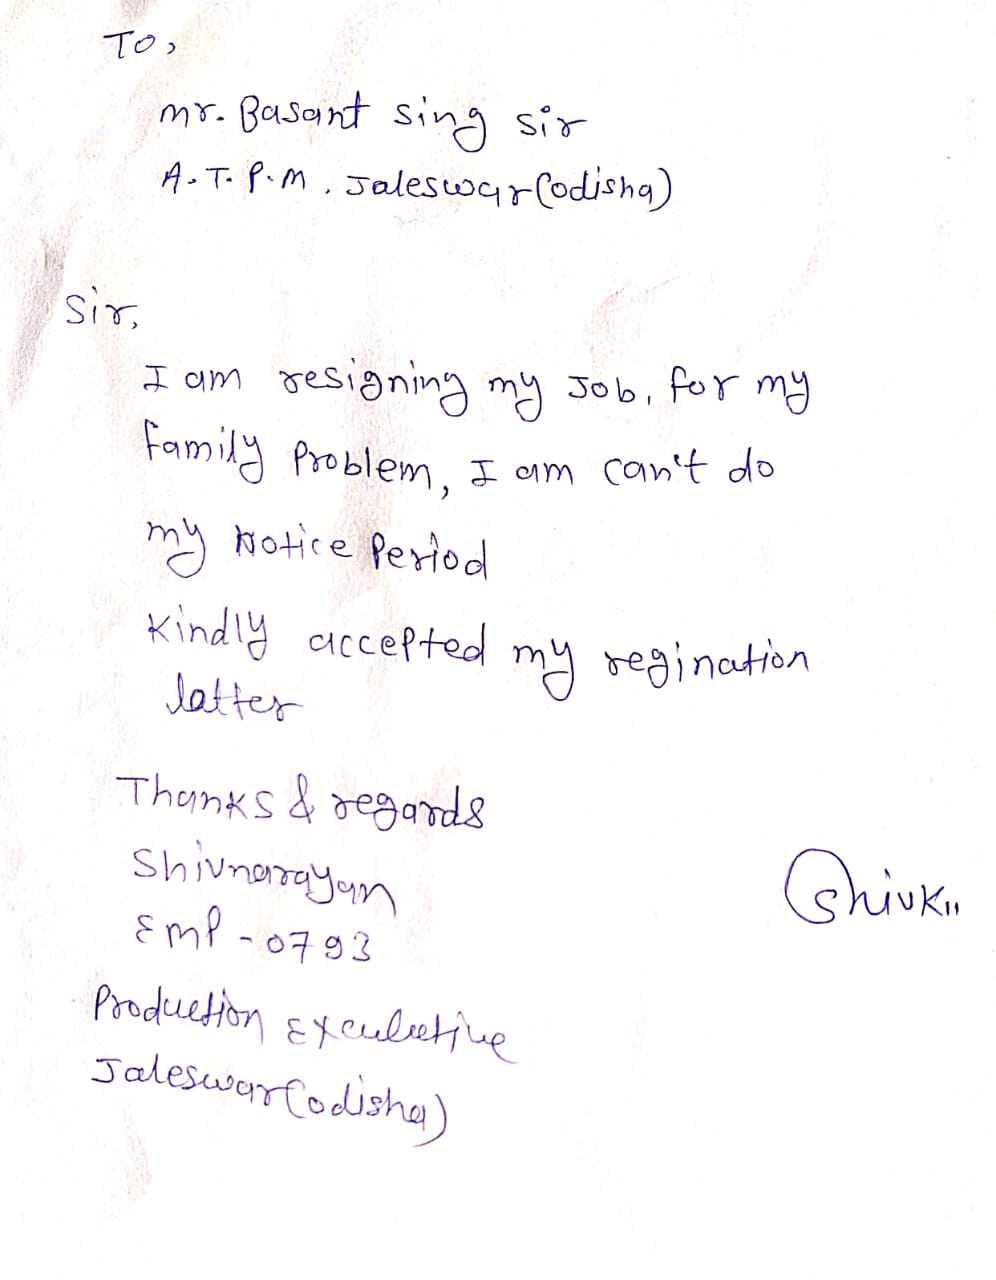 To,
mr. Basant sing sir
A.T.P.M, Jaleswar(odisha)
Sir,
I am resigning my Job, for my
family Problem, I am can't do
my Notice Period
Kindly accepted my regination
latter
Thanks & regards
Shivnarayan
Emp - 0793
Shivk
Production Exculictive
Jaleswar(odisha)